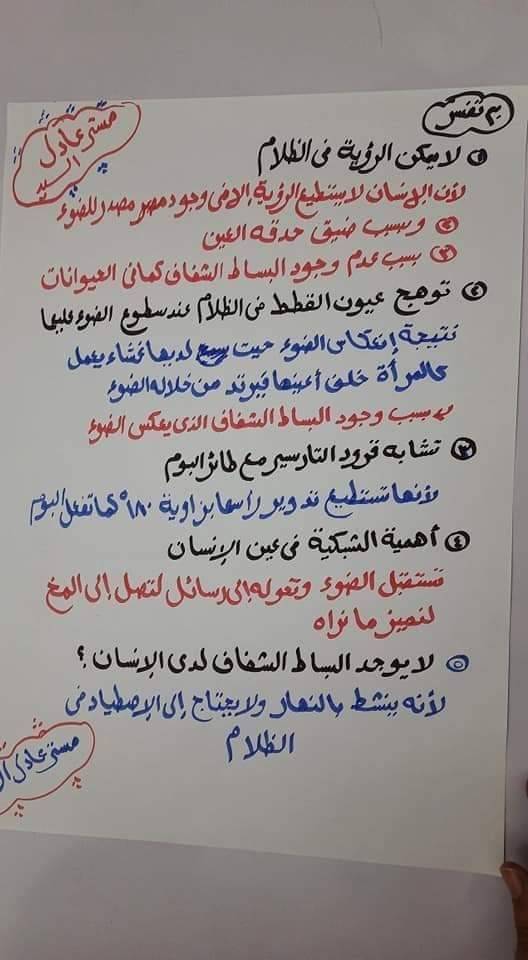 بم تفسر
مستر عادل السيد
١ لا يمكن الرؤية فى الظلام
لأن الإنسان لا يستطيع الرؤية إلا فى وجود مصدر للضوء
٢ وبسبب ضيق حدقه العين
٣ بسبب عدم وجود البساط الشفاف كما فى الحيوانات
٢ توهج عيون القطط فى الظلام عند سطوع الضوء عليها
نتيجة إنعكاس الضوء حيث لديها غشاء يعمل
كالمرأة خلف أعينها فيرتد من خلاله الضوء
بسبب وجود البساط الشفاف الذى يعكس الضوء
٣ تشابه قرود التارسير مع طائر البوم
لأنها تستطيع تدوير رأسها بزاوية ١٨٠° كما تفعل البوم
٤ أهمية الشبكية فى عين الإنسان
تستقبل الضوء وتحوله إلى رسائل لتصل إلى المخ
لتميز ما نراه
٥ لا يوجد البساط الشفاف لدى الإنسان ؟
لأنه ينشط بالنهار ولا يحتاج إلى الإصطياد فى
الظلام
مستر عادل ال